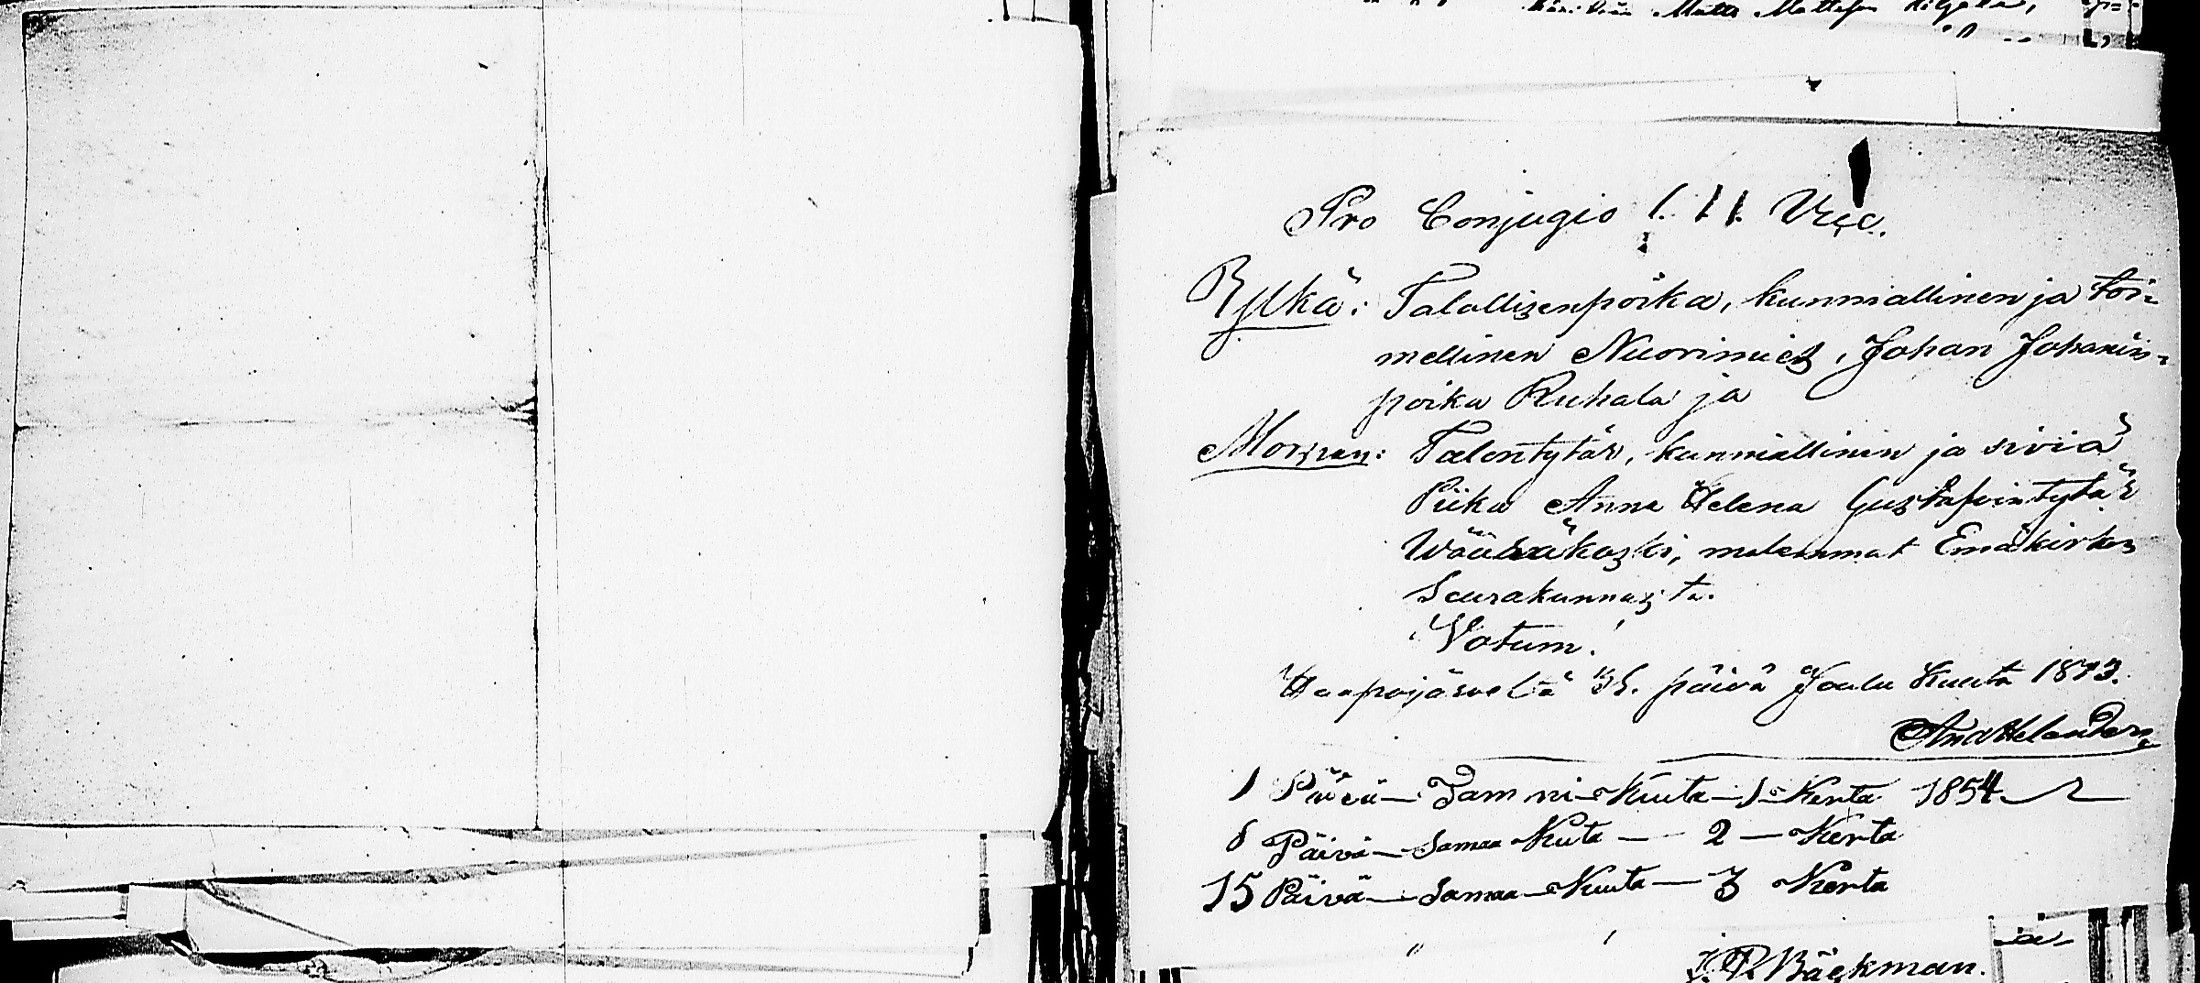 Matts Mattsson
Pro Conjugio 1. 11 Vice.
Sylkä: Talollisenpoika, kunniallinen ja toi=
mellinen Nuorimies, Johan Johanin=
poika Ruhala ja
Morsian: Talontytär, kunniallinen ja siviä
Piika Anna Helena Gustafvintytär
Wääräkoski, molemmat Emäkirkon
Seurakunnasta.
Votum!
Haapojärveltä päivä Joulu Kuuta 1853.
And Helander
1 Päivä — Tammi — Kuuta — 1 — Kerta 1854
8 Päivä — Samaa Kuta — 2 — Kerta
15 Päivä — Samaa — Kuuta — 3 Kerta
J. P. Bäckman.